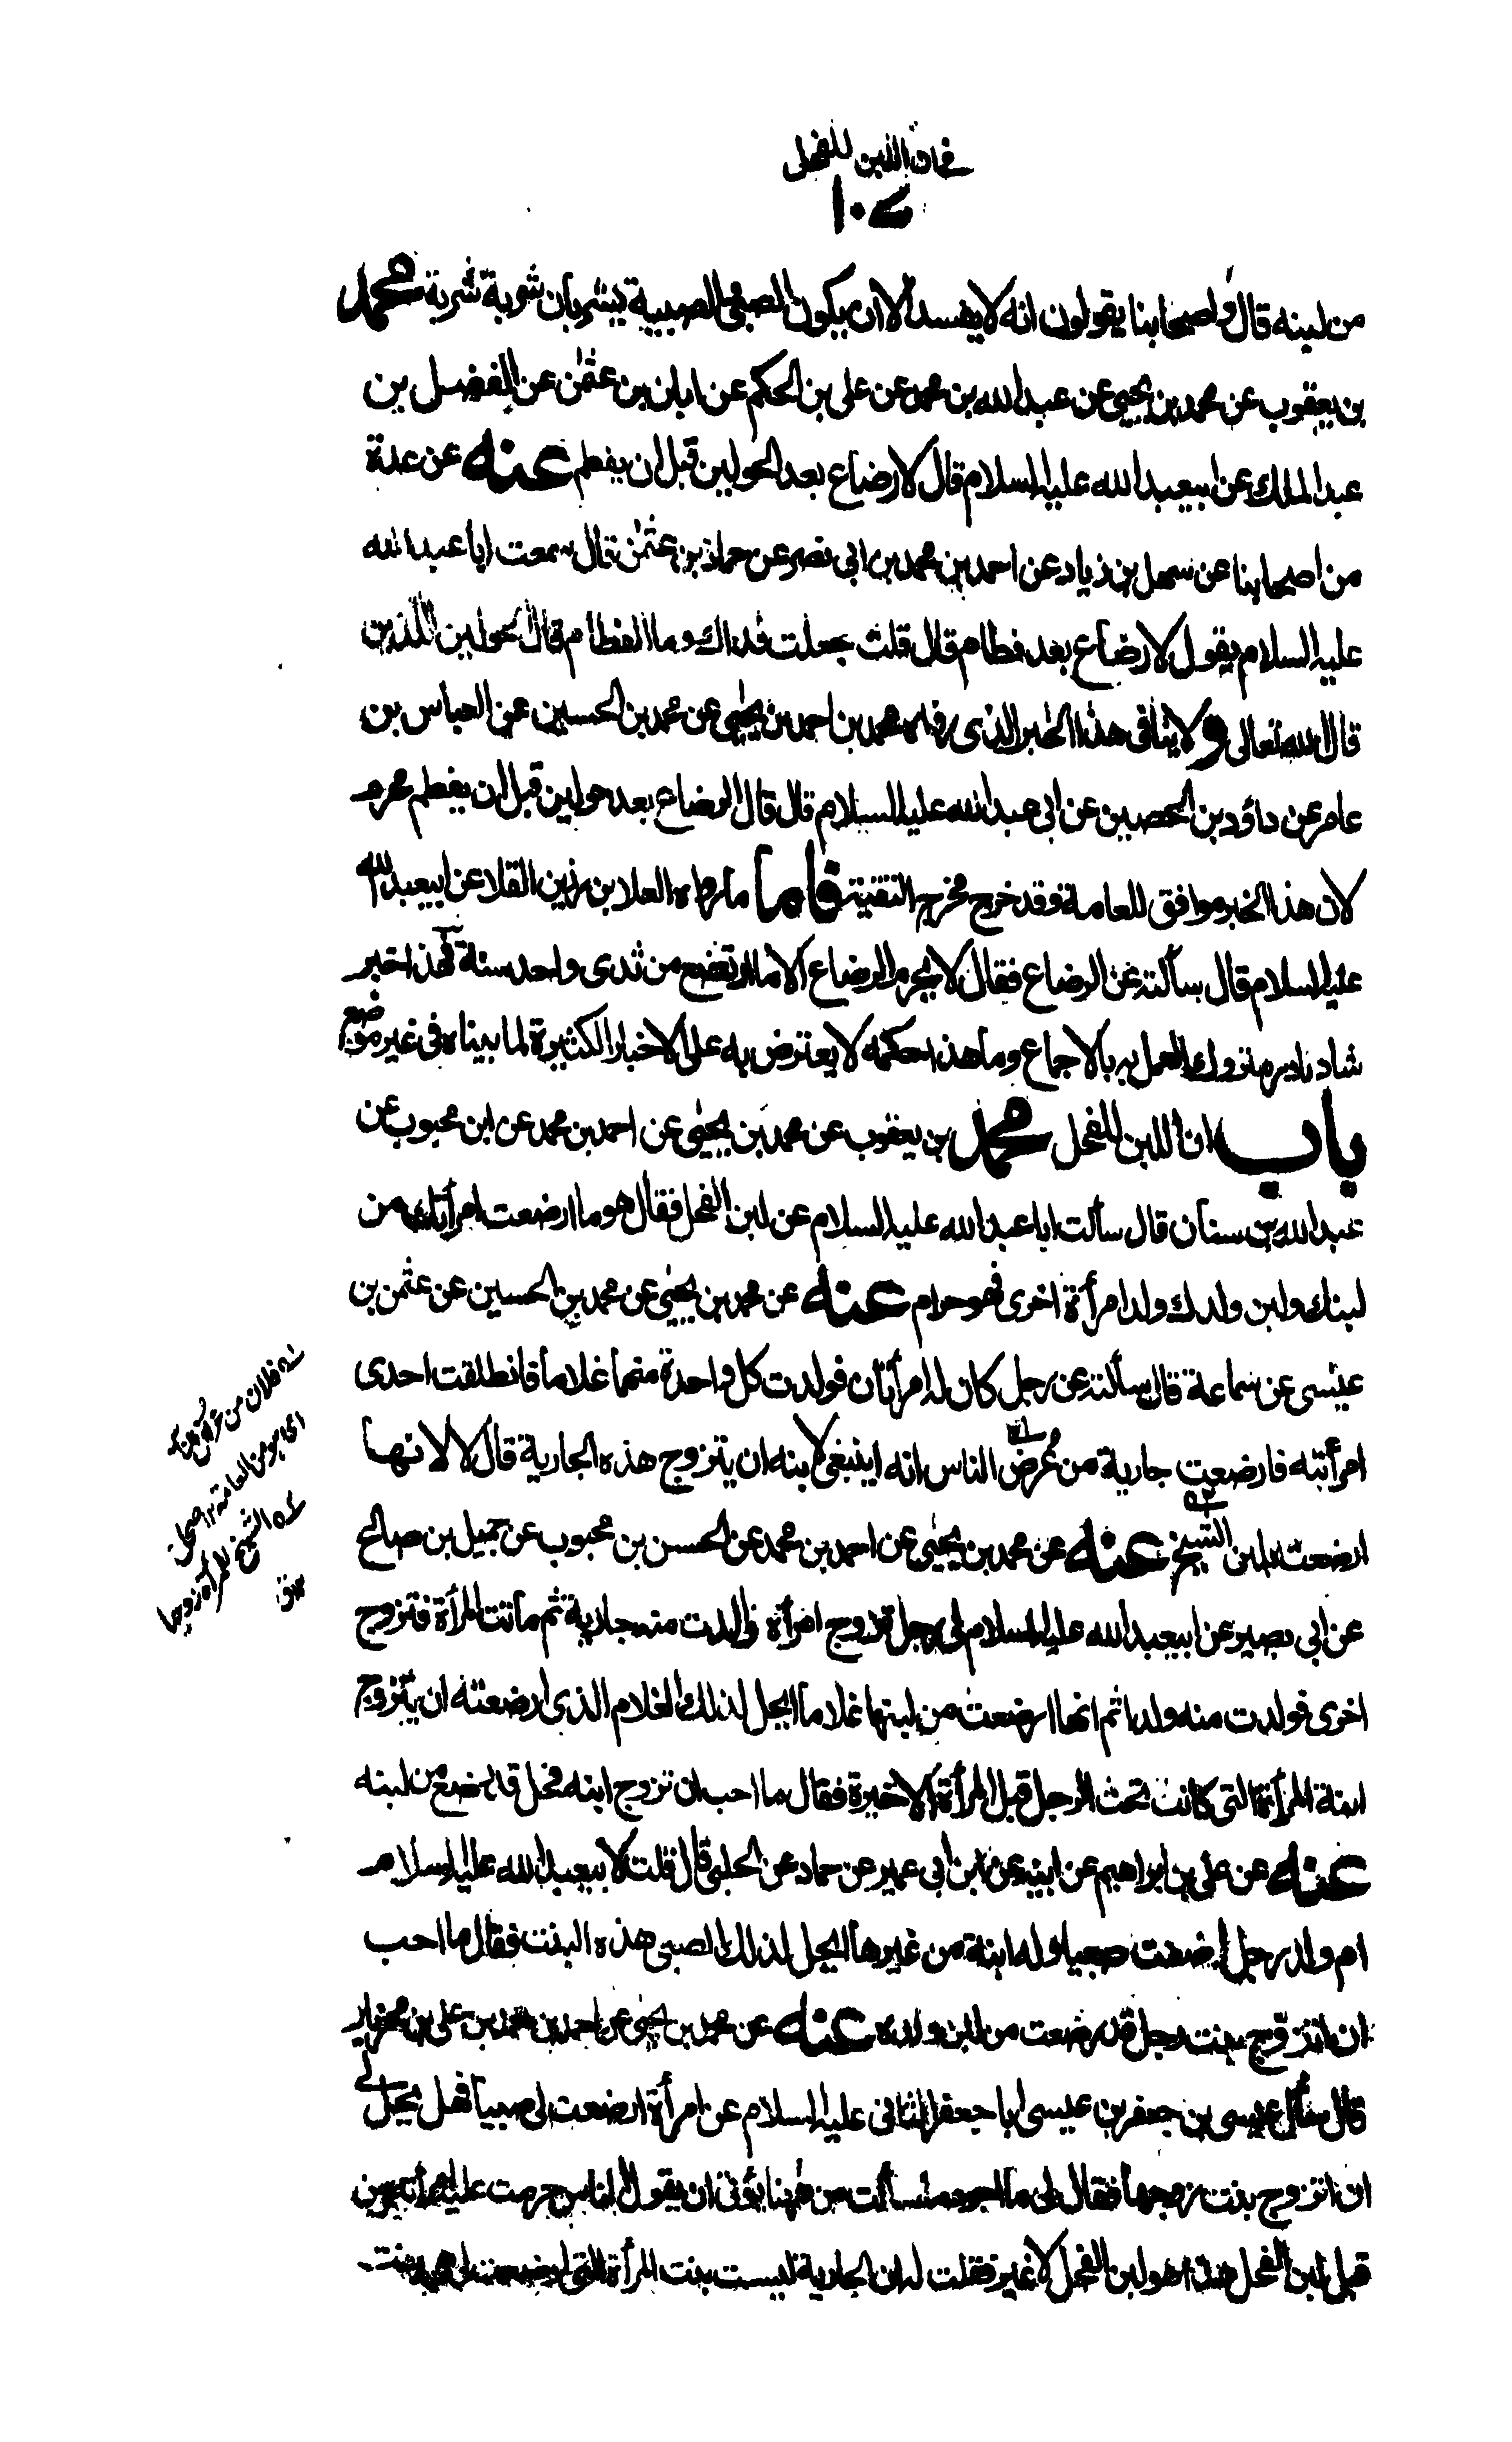 في ان اللبن للفحل
١٠٤
من لبنه قال واصحابنا يقولون انه لا يفسد الا ان يكون الصبي والصبية يشربان شربة شربة محمد
بن يعقوب عن محمد بن يحيى عن عبد الله بن محمد عن على بن الحكم عن ابان بن عثمن عن الفضل بن
عبد الملك عن ابيعبد الله عليه السلام قال لا رضاع بعد الحولين قبل ان يفطم عنه عن عدة
من اصحابنا عن سهل بن زياد عن احمد بن محمد بن ابى نصر عن حماد بن عثمن قال سمعت ابا عبد الله
عليه السلام يقول لا رضاع بعد فطام قال قلت جعلت فداك وما الفطام قال الحولين اللذين
قال الله تعالى ولا ينافى هذا الخبر الذى رواه محمد بن احمد بن يحيى عن محمد بن الحسين عن العباس بن
عامر عن داود بن الحصين عن ابى عبد الله عليه السلام قال قال الرضاع بعد حولين قبل ان يفطم محرم
لان هذا الخبر موافق للعامة وقد خرج مخرج التقية فاما ما رواه العلا بن رزين القلا عن ابيعبد الله
عليه السلام قال سألته عن الرضاع فقال لا يحرم الرضاع الا ما ارتضع من ثدى واحد سنة فهذا خبر
شاد نادر متروك العمل به بالاجماع وما هذا حكمه لا يعترض به على الاخبار الكثيرة لما بيناه فى غير موضع
باب ان اللبن للفحل محمد بن يعقوب عن محمد بن يحيى عن احمد بن محمد عن ابن محبوب عن
عبد الله بن سنان قال سألت ابا عبد الله عليه السلام عن لبن الفحل فقال هو ما ارضعت امرأتك من
لبنك ولبن ولدك ولد امرأة اخرى فهو حرام عنه عن محمد بن يحيى عن محمد بن الحسين عن عثمن بن
عيسى عن سماعة قال سألته عن رجل كان له امرأتان فولدت كل واحدة منهما غلاما فانطلقت احدى
امرأتيه فارضعت جارية من عُرض الناس انه اينبغى لابنه ان يتزوج هذه الجارية قال لا لانها
ارضعت بلبن الشيخ عنه عن محمد بن يحيى عن احمد بن محمد عن الحسن بن محبوب عن جميل بن صالح
عن ابى بصير عن ابيعبد الله عليه السلام فى رجل تزوج امرأة فولدت منه جارية ثم ماتت المرأة فتزوج
اخرى فولدت منه ولدا ثم انها ارضعت من لبنها غلاما ايحل لذلك الغلام الذى ارضعته ان يتزوج
ابنة المرأة التى كانت تحت الرجل قبل المرأة الاخيرة فقال ما احب ان تزوج ابنه فحل قد رضع من لبنه
عنه عن على بن ابراهيم عن ابيه عن ابن ابى عمير عن حماد عن الحلبى قال قلت لابيعبد الله عليه السلام
ام ولد رجل ارضعت صبيا وله ابنة من غيرها ايحل لذلك الصبى هذه البنت فقال ما احب
ان اتزوج بنت رجل قد رضعت من لبن ولده عنه عن محمد بن يحيى عن احمد بن محمد عن على بن مهزيار
قال سأل عيسى بن جعفر بن عيسى ابا جعفر الثانى عليه السلام عن امرأة ارضعت لى صبيا فهل يحل لى
ان اتزوج بنت زوجها فقال لى ما اجود ما سألت من ههنا يؤتى ان يقول الناس حرمت عليه امرأته من
قبل لبن الفحل هذا هو لبن الفحل لا غيره فقلت له ان الجارية ليست بنت المرأة التى ارضعت لى هى بنت
فلان من
اى هو من العامة صحاح
الشيخ للمرأة زوجها